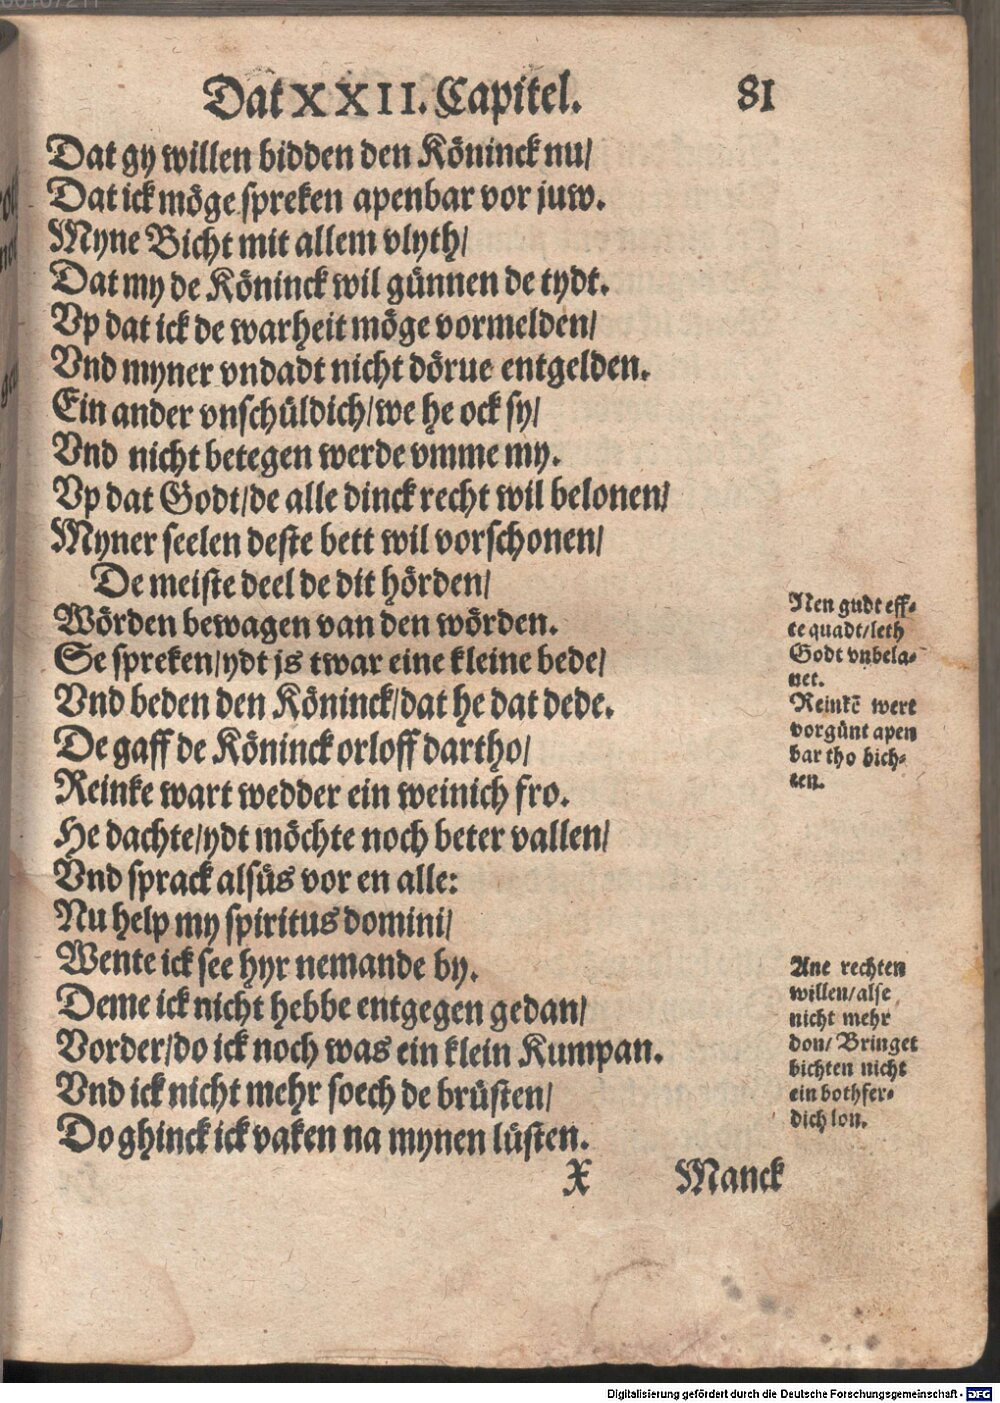 Dat XXII. Capitel. 81
Dat gy willen bidden den Köninck nu/
Dat ick möge spreken apenbar vor juw.
Myne Bicht mit allem vlyth/
Dat my de Köninck wil günnen de tydt.
Vp dat ick de warheit möge vormelden/
Vnd myner vndadt nicht dörue entgelden.
Ein ander vnschüldich/we he ock sy/
Vnd nicht betegen werde vmme my.
Vp dat Godt/de alle dinck recht wil belonen/
Myner seelen deste bett wil vorschonen/
De meiste deel de dit hörden/
Wörden bewagen van den wörden.
Se spreken/ydt js twar eine kleine bede/
Vnd beden den Köninck/dat he dat dede.
De gaff de Köninck orloff dartho/
Reinke wart wedder ein weinich fro.
He dachte/ydt möchte noch beter vallen/
Vnd sprack alsüs vor en alle:
Nu help my spiritus domini/
Wente ick see hyr nemande by.
Deme ick nicht hebbe entgegen gedan/
Vorder/do ick noch was ein klein Kumpan.
Vnd ick nicht mehr soech de brüsten/
Do ghinck ick vaken na mynen lüsten.
X Manck
Nen gudt eff-
te quadt/leth
Godt vnbela-
net.
Reinkē wert
vorgünt apen
bar tho bich-
ten.
Ane rechten
willen/alse
nicht mehr
don/ Bringet
bichten nicht
ein bothfer-
dich lon.
Digitalisierung gefördert durch die Deutsche Forschungsgemeinschaft - DFG